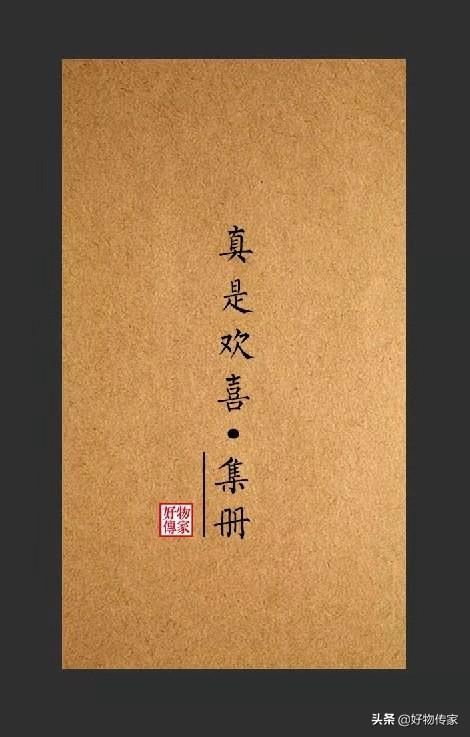 真是欢喜·集册
好物
傳家
头条 @好物传家